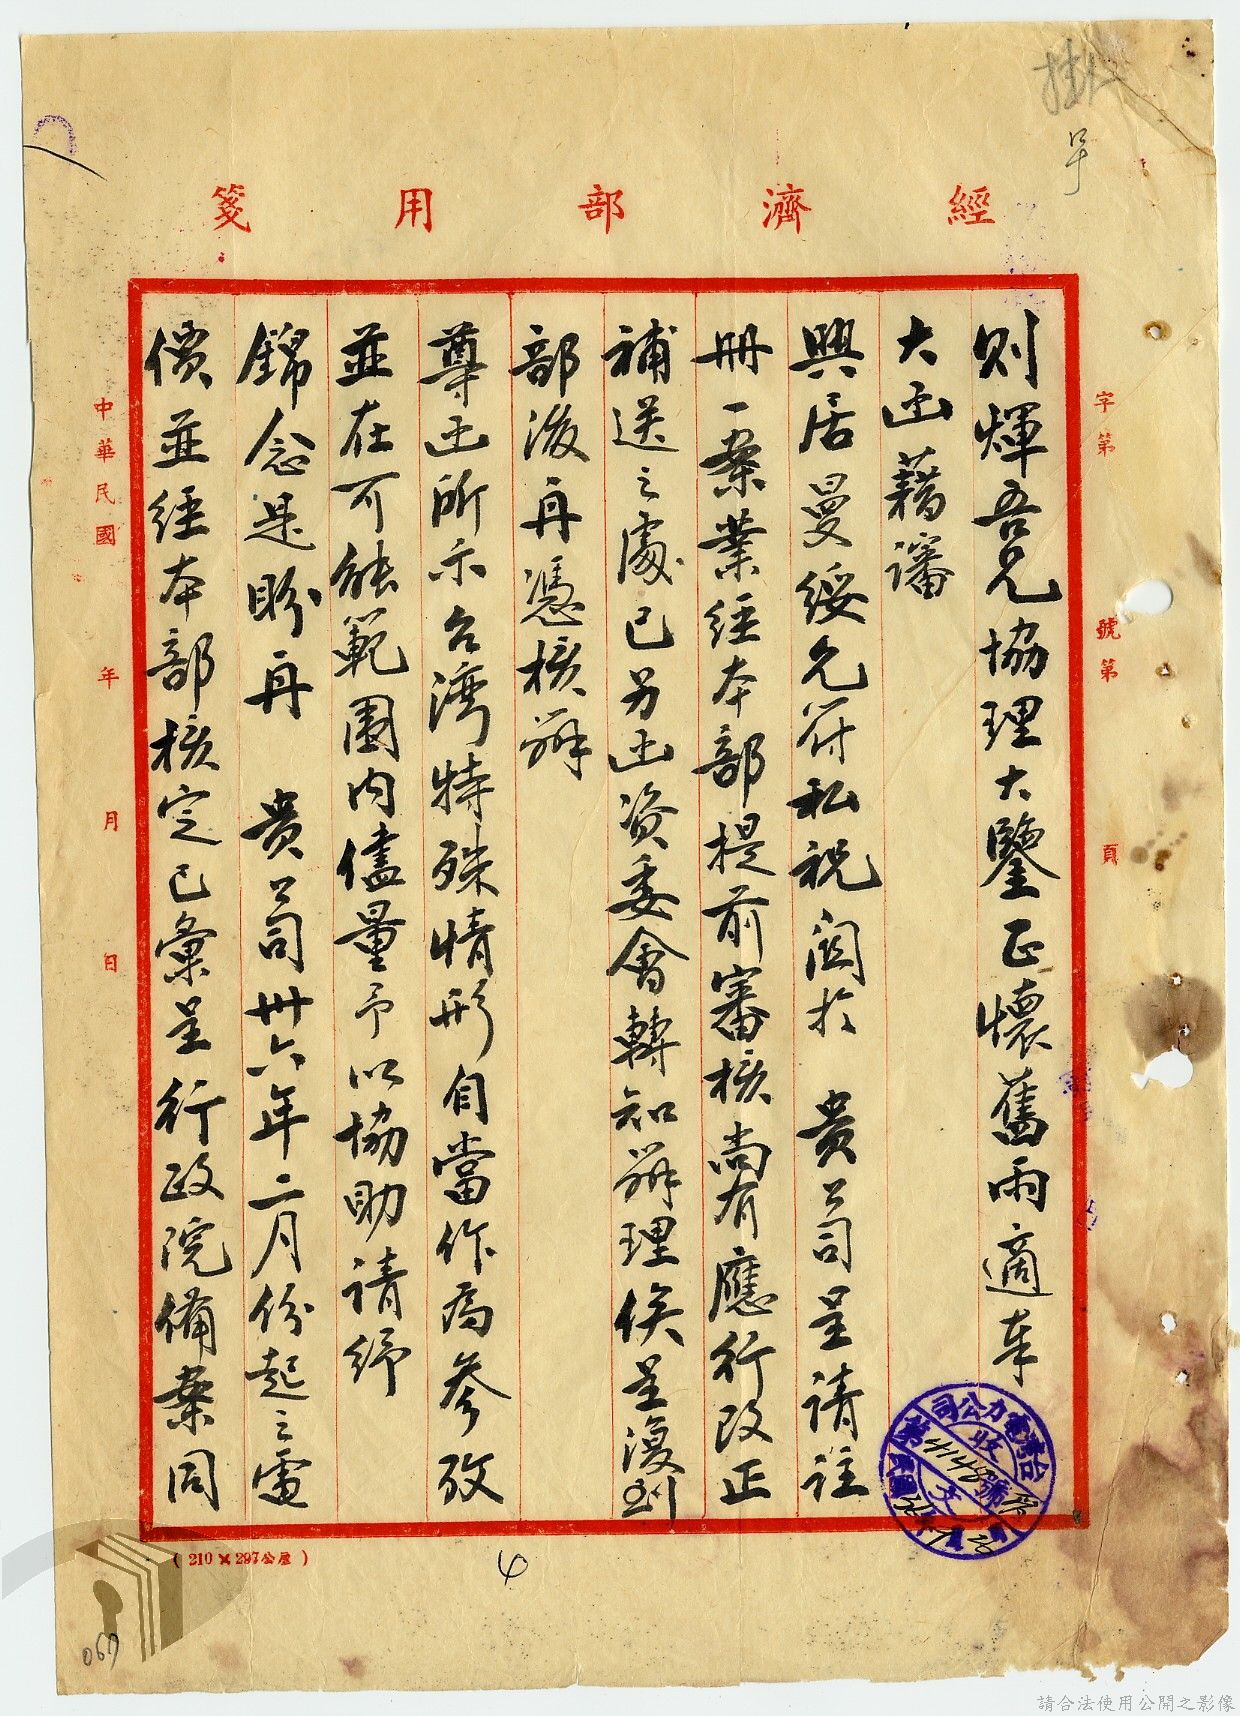 掛
号
經濟部用箋
字第 號第 頁
則煇吾兄協理大鑒正懷舊雨適奉
大函藉審
興居曼綏允符私祝關於 貴公司呈請註
冊一案業經本部提前審核尚有應行改正
補送之處已另函資委會轉知辦理俟呈復到
部後再憑核辦
尊函所示台灣特殊情形自當作為參攷
並在可能範圍內儘量予以協助請紓
錦念是盼再 貴公司卅六年二月份起之電
價並經本部核定已彙呈行政院備案同
中華民國 年 月 日
台灣電力公司
收文
4148號
(210×297公厘)
4
067
請合法使用公開之影像